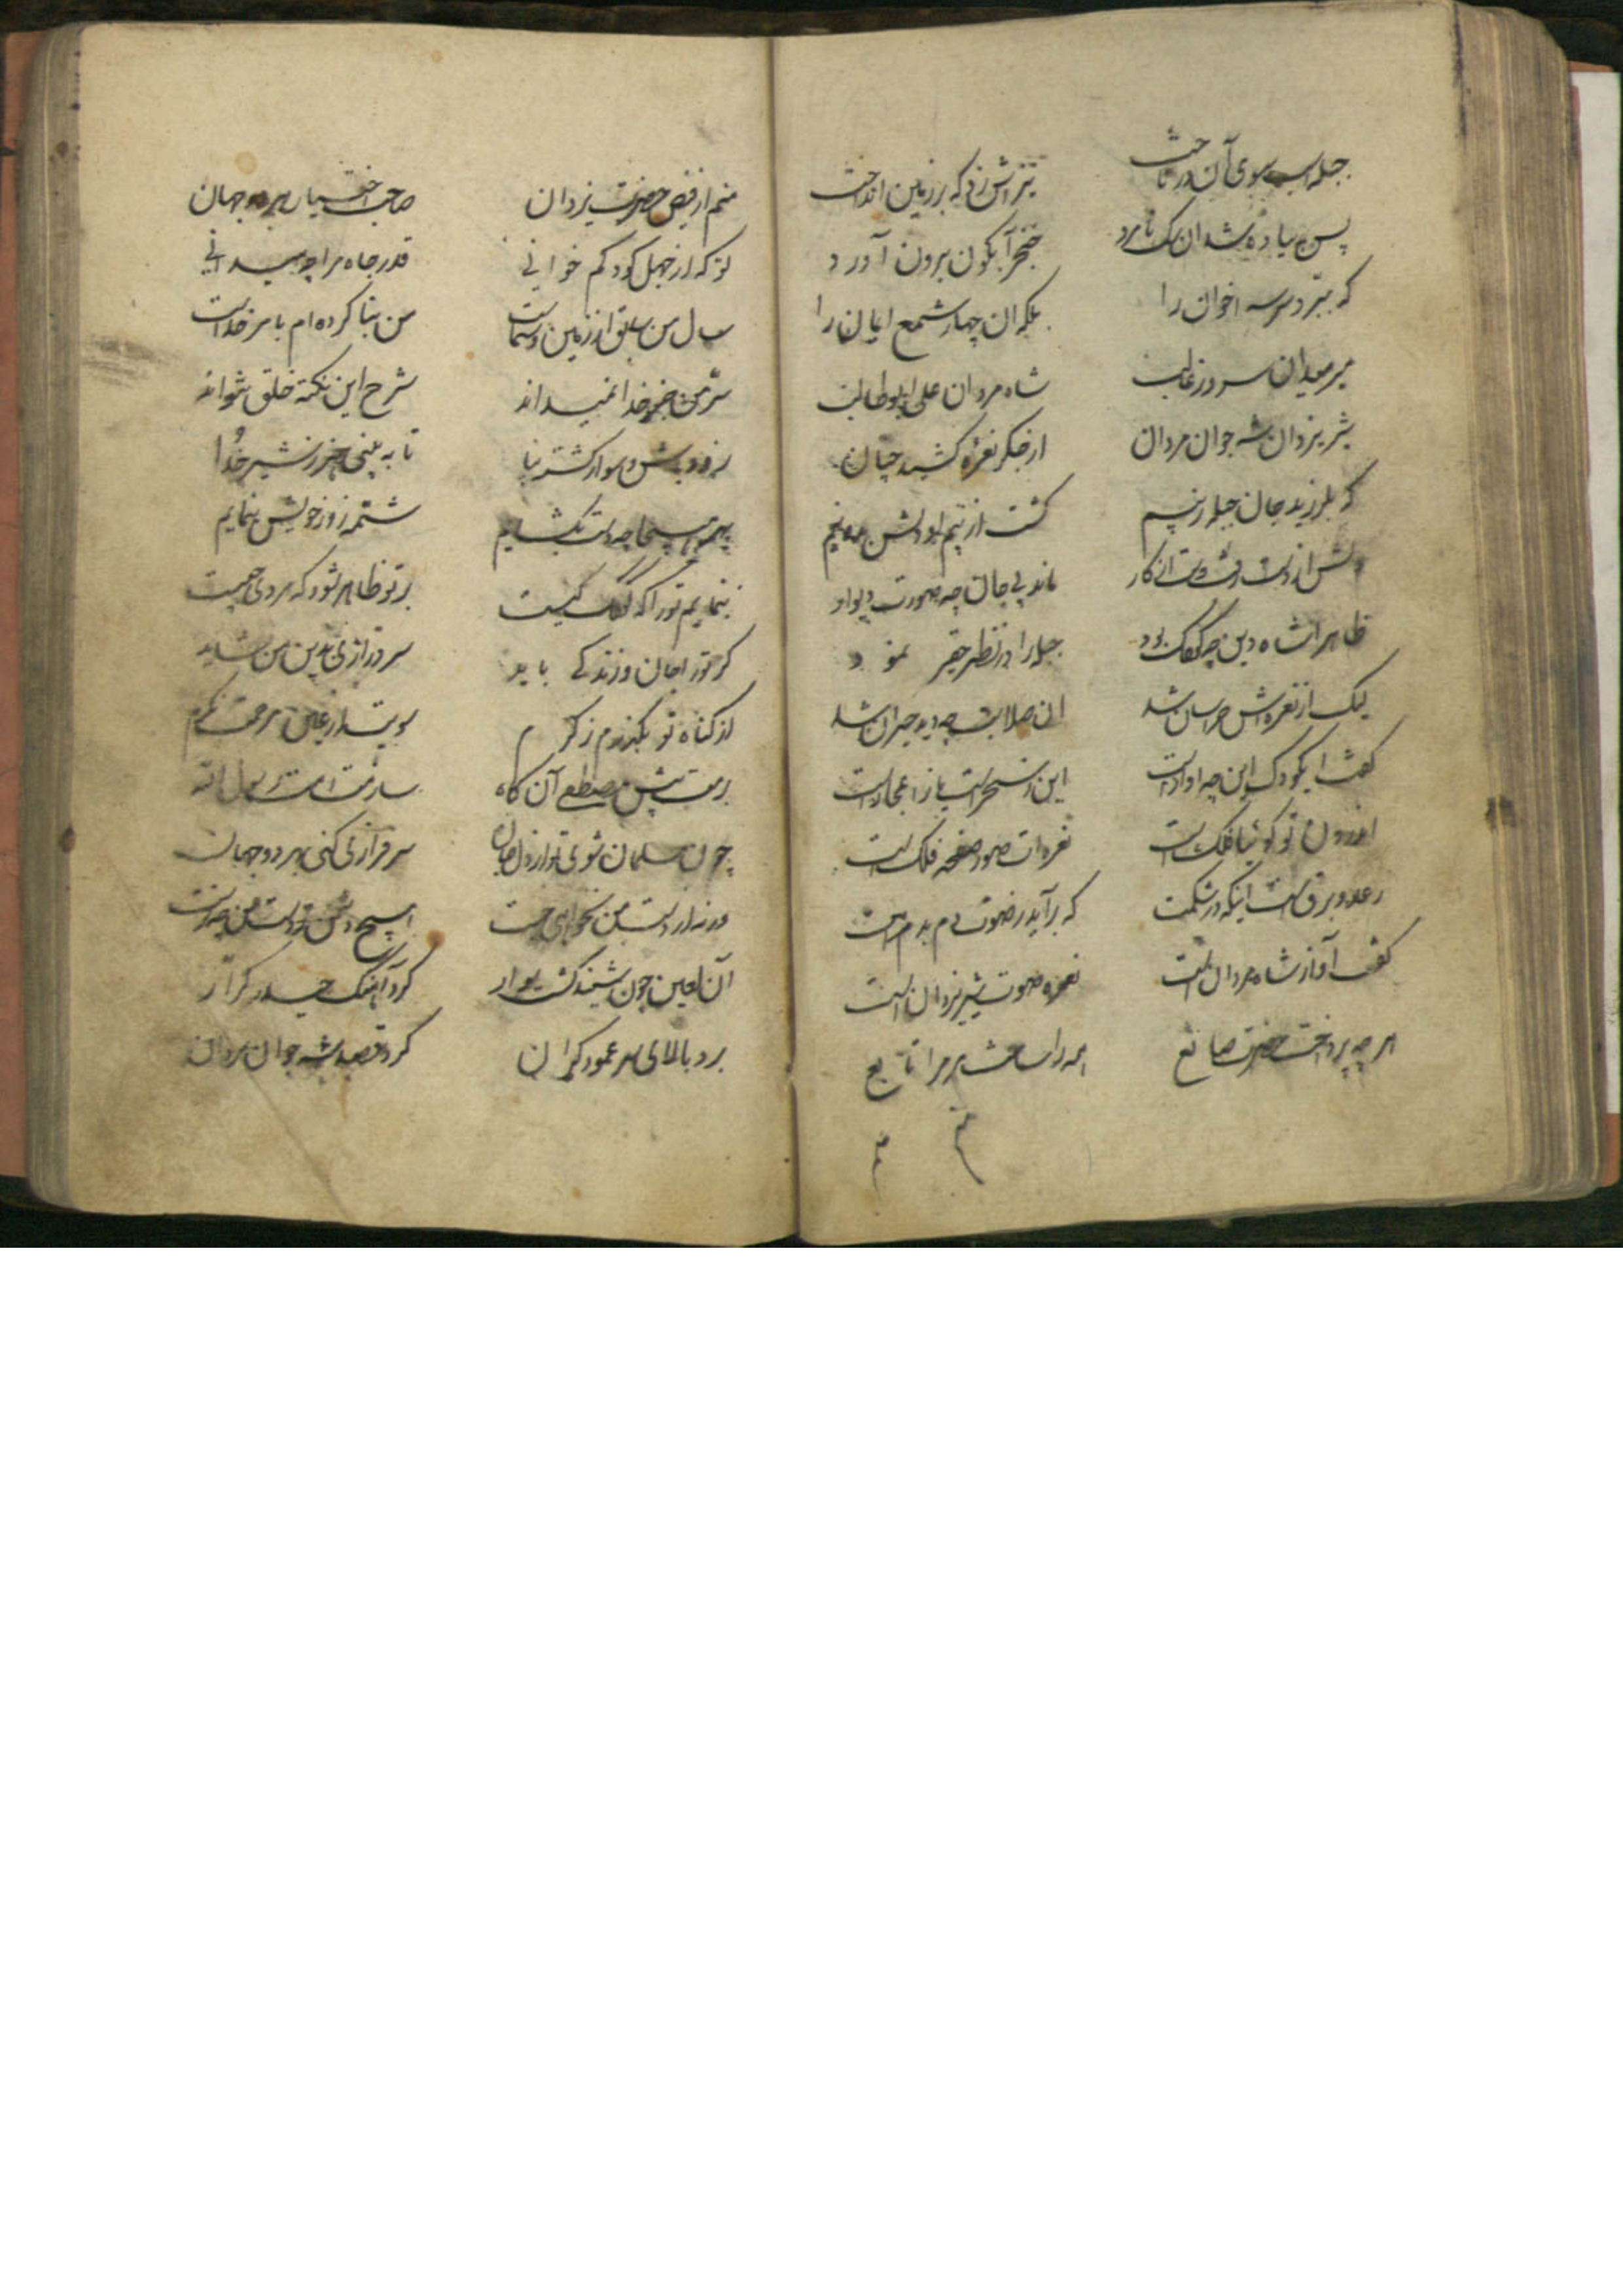 جمله اسب سوی آن در تاخت
تیر اش زد که بر زمین انداخت
پس پیاده شد ان سک نامرد
خنجر آبگون برون آورد
که ببرد سر سه اخوان را
بلکه ان چهار شمع ایمان را
میر میدان سرور غالب
شاه مردان علی ابوطالب
شیر یزدان شه جوان مردان
از جکر نعره کشید چنان
که بلرزید جان جمله ز بیم
گشت از بیم او دلش بدو نیم
دلش از دست رفت و دست از کار
ماند بی جان چه صورت دیوار
ظاهرا شاه دین چه کودک بود
جمله را در نظر حقیر نمود
لیک از نعره اش هراسان شد
ان صلابت چه دید حیران شد
گفت ای کودک این چه اواز است
این ز سحر است یا ز اعجاز است
اندرون تو گوئیا فلک است
نعره ات صور صفحه فلک است
رعد و برق است اینکه در شکمت
که برآید ز صوت دم بدمت
گفت آواز شاه مردان است
نعره صوت شیر یزدان است
هر چه پرداخت حضرت صانع
همه را ساخت مر مرا تابع
منم از فیض حضرت یزدان
صاحب اختیار هر دو جهان
تو که از جهل کودکم خوانی
قدر جاه مرا چه میدانی
سال من سابق از زمین و سماست
من بنا کرده ام بامر خداست
سر من جز خدا نمیداند
شرح این نکته خلق نتواند
زود پیش و سوار کشته بیا
تا به بینی هنر ز شیر خدا
پیش تو پنجه چه دست بگشایم
شتمه زور خویش بنمایم
بنمایم تو را که کودک کیست
بر تو ظاهر شود که مردی چیست
گر تو را جان و زندگی باید
سر درآری بدین من شاید
از گناه تو بگذرم ز کرم
برمت پیش مصطفی آن گاه
سازمت امت رسول الله
چون مسلمان شوی تو از دل و جان
سرفرازی کنی بهر دو جهان
ورنه از دست من نخواهی جست
آن لعین چون شنید گشت سوار
کرد آهنگ حیدر کرار
برد بالای سر عمود گران
کرد قصد شه جوان مردان